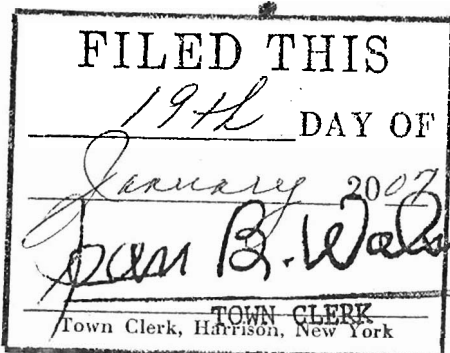 FILED THIS
19th DAY OF
January 2007
Joan B. Wals
TOWN CLERK
Town Clerk, Harrison, New York